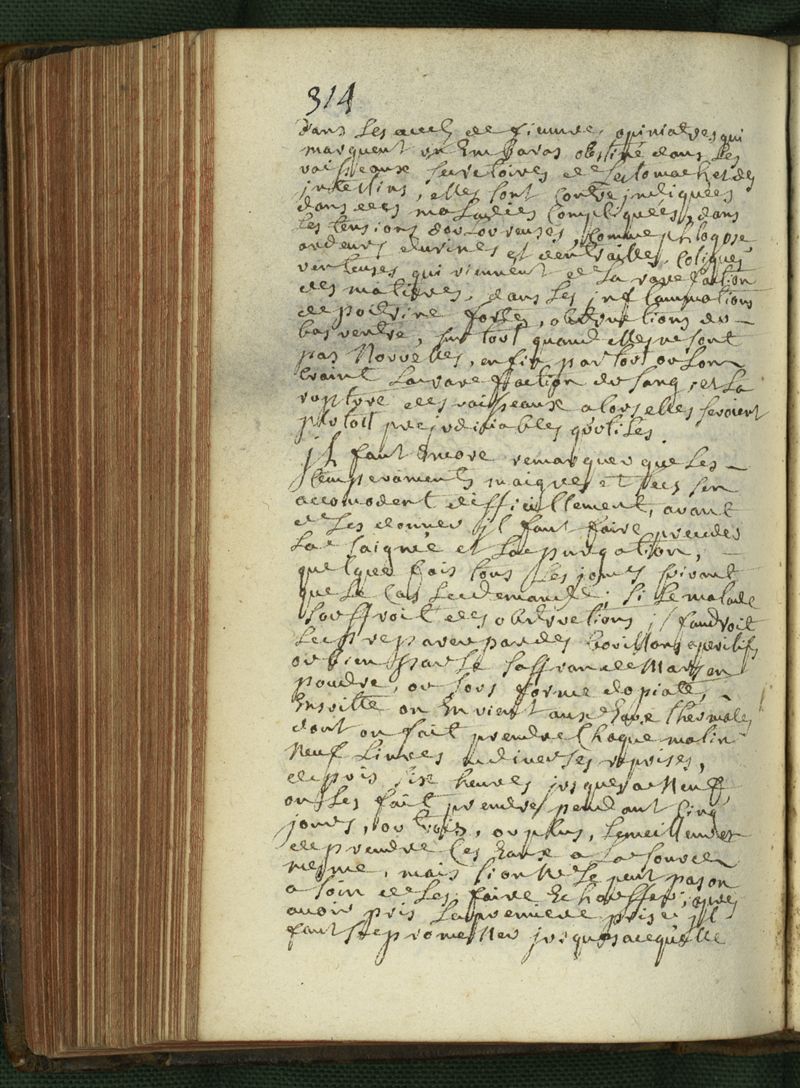 314
dans les accez de fieuvre, opiniatres qui
marquent un Embaras obstiné dans les
vaisseaux secretoires de lestomach et des
jntestins, elles sont contrejndiquées
dans des maladies compliquées, dans
les tensions dovlovreuses, comme phlogose
ardeurs durines et dentrailles, coliques
venteuses qui viennent de la rarefaction
des matieres, dans les jnflammations
de poitrine fortes, obstructions du
bas ventre, sur tout quand elles ne sont
pas Nouvelles, enfin par tout ou Lon
craint La rarefaction du sang, et La
rupture des vaisseaux alors elles seroient
plutost prejudiciables qutiles.
jl faut Encore remarquer que Les
temperaments maigres et secs sen
accomodent difficillement, avant
de Les donner jl faut faire preceder
La saignée et La purgation,
quelques fois tous Les jours suivant
que Le Cas Le demande; si Le malade
souffroit des obstructions jl faudroit
Le preparer par des bouillons aperitifs
ou bien par Le saffran de Mars en
poudre, ou sous forme dopiate,
Ensuitte on En vient aux Eaux thermales
dont on fait prendre Chaque matin
Neuf Livres a diverses reprises,
depuis six heures jusques a Neuf,
on Les fait prendre pendant Cinq
jours, ou trois, ou plus, Le meilleur est
de prendre Ces Eaux a La source
mesme, mais si on Ne Le peut pas on
a soin de Les faire Echauffer; apres
avoir pris La premiere prise jl
faut se promeNer jusques a ce quelle